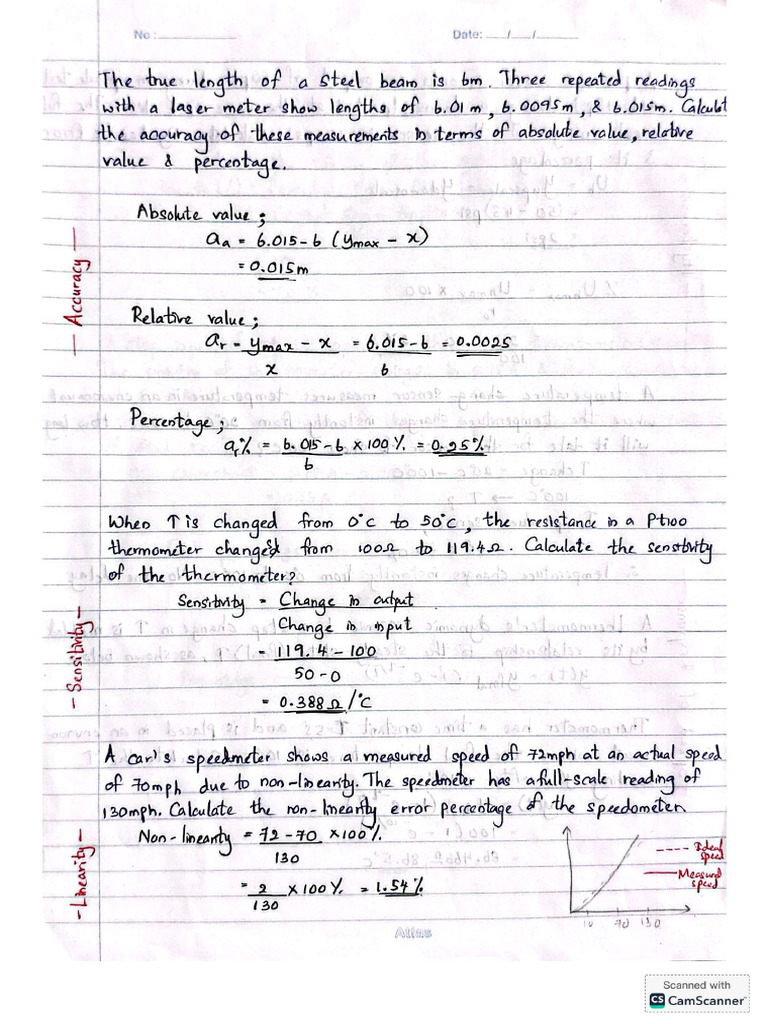 No : Date: / /
The true length of a steel beam is 6m. Three repeated readings
with a laser meter show lengths of 6.01 m, 6.0095m, & 6.015m. Calculat
the accuracy of these measurements in terms of absolute value, relative
value & percentage.
Absolute value ;
aa = 6.015 - 6 (ymax - x)
= 0.015m
- Accuracy -
Relative value ;
ar = ymax - x = 6.015 - 6 = 0.0025
x 6
Percentage ;
ar% = 6.015 - 6 x 100 % = 0.25%
6
When T is changed from 0°C to 50°C, the resistance in a Pt100
thermometer changed from 100Ω to 119.4Ω. Calculate the sensitivity
of the thermometer?
Sensitivity = Change in output
Change in input
- Sensitivity -
= 119.4 - 100
50 - 0
= 0.388 Ω/°C
A car's speedmeter shows a measured speed of 72mph at an actual speed
of 70mph due to non-linearity. The speedmeter has a full-scale reading of
130mph. Calculate the non-linearity error percentage of the speedometer.
Non-linearity = 72 - 70 x 100 %
130
- Linearity -
= 2 x 100 % = 1.54 %
130
Ideal
speed
Measured
speed
10 70 130
Atlas
Scanned with
CS CamScanner